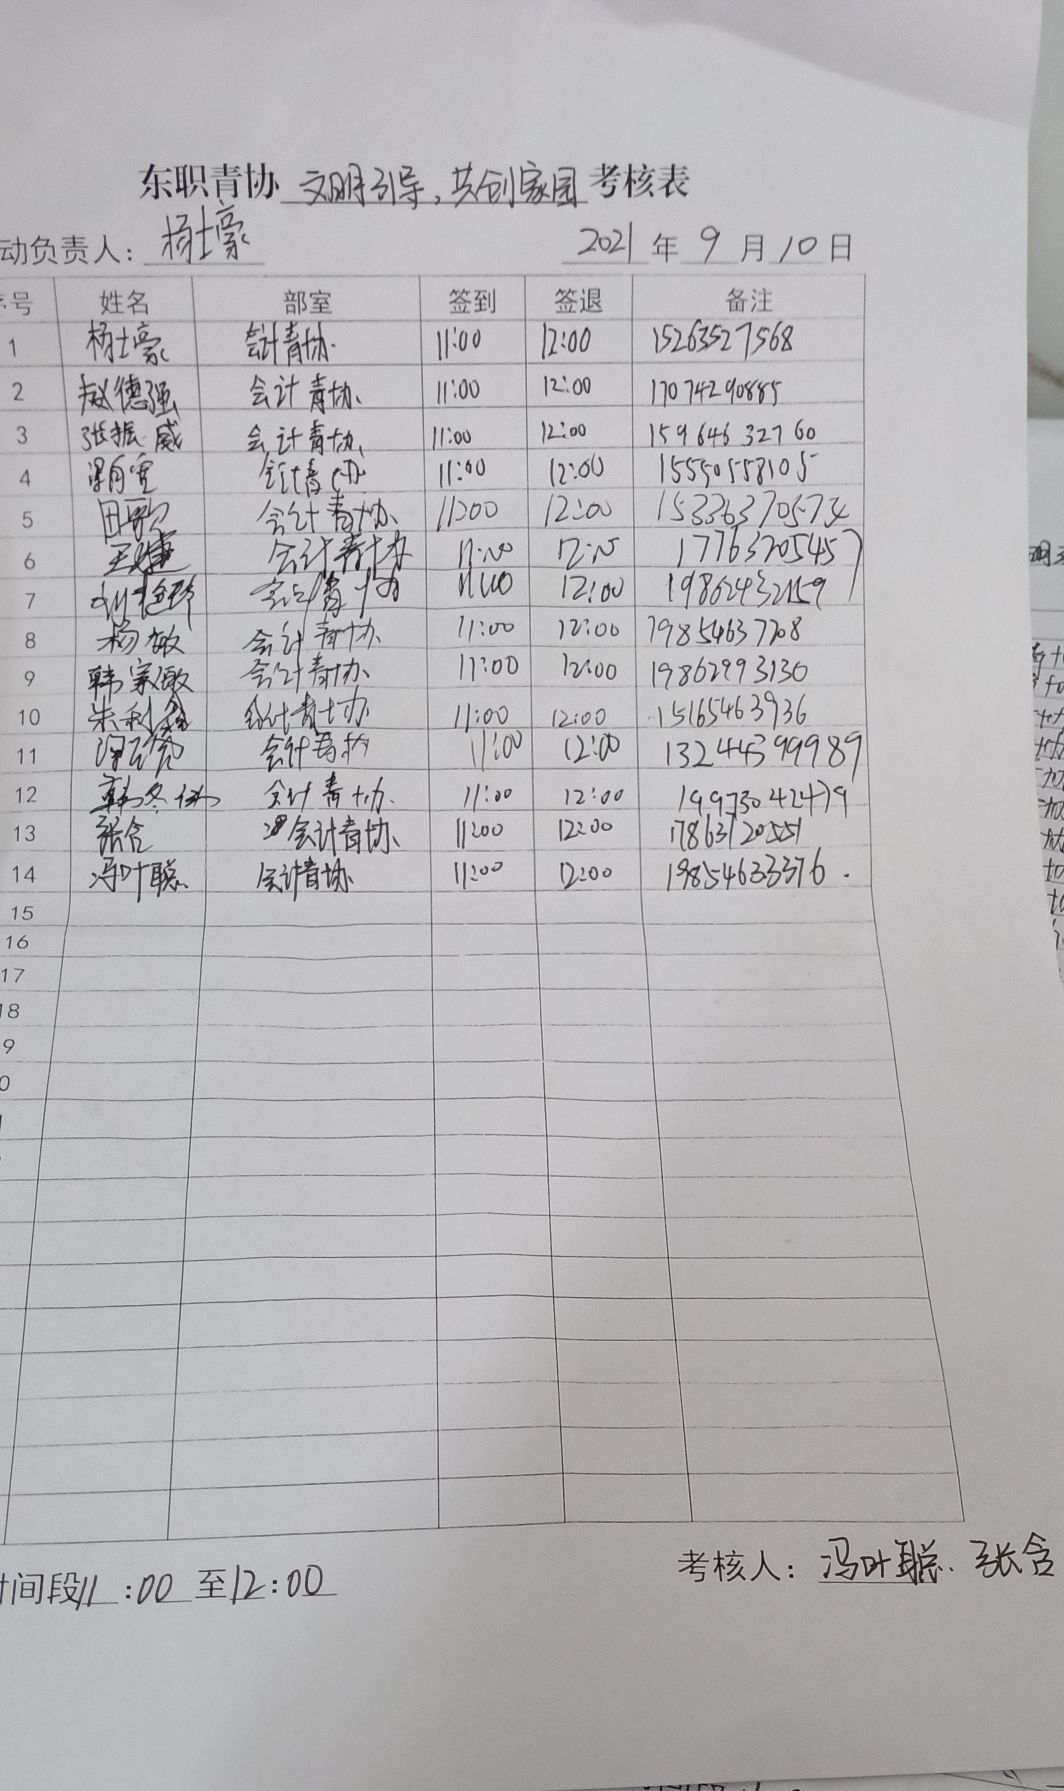 东职青协 文明引导，共创家园 考核表
动负责人：杨士豪 2021 年 9 月 10 日
序号 姓名 部室 签到 签退 备注
1 杨士豪 会计青协 11:00 12:00 15263527568
2 赵德强 会计青协 11:00 12:00 17074290885
3 张振威 会计青协 11:00 12:00 15964632760
4 会计青协 11:00 12:00 15550558105
5 田歌 会计青协 11:00 12:00 15336370574
6 王捷 会计青协 11:00 12:00 17763205457
7 会计青协 11:00 12:00 19862432159
8 杨敏 会计青协 11:00 12:00 19854637208
9 韩家敏 会计青协 11:00 12:00 19862993130
10 朱利鑫 会计青协 11:00 12:00 15165463936
11 会计青协 11:00 12:00 13244399989
12 韩冬 会计青协 11:00 12:00 19973042479
13 张含 会计青协 11:00 12:00 17863120551
14 冯叶聪 会计青协 11:00 12:00 19854633376.
15
16
17
18
9
0
时间段11:00 至12:00 考核人：冯叶聪、张含